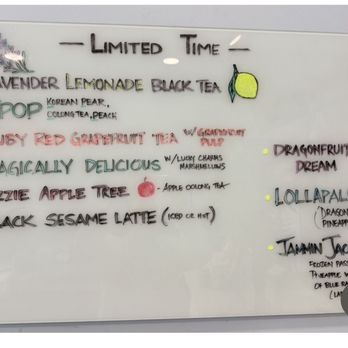 — LIMITED TIME —
AVENDER LEMONADE BLACK TEA
POP KOREAN PEAR,
OOLONG TEA, PEACH
UBY RED GRAPEFRUIT TEA W/ GRAPEFRUIT
PULP
AGICALLY DELICIOUS W/ LUCKY CHARMS
MARSHMELLOWS
ZZIE APPLE TREE - APPLE OOLONG TEA
LACK SESAME LATTE (ICED OR HOT)
• DRAGONFRUI
DREAM
• LOLLAPAL
(DRAGON
PINEAPP
• JAMMIN JAC
FROZEN PAS
PINEAPPLE W
OF BLUE RA